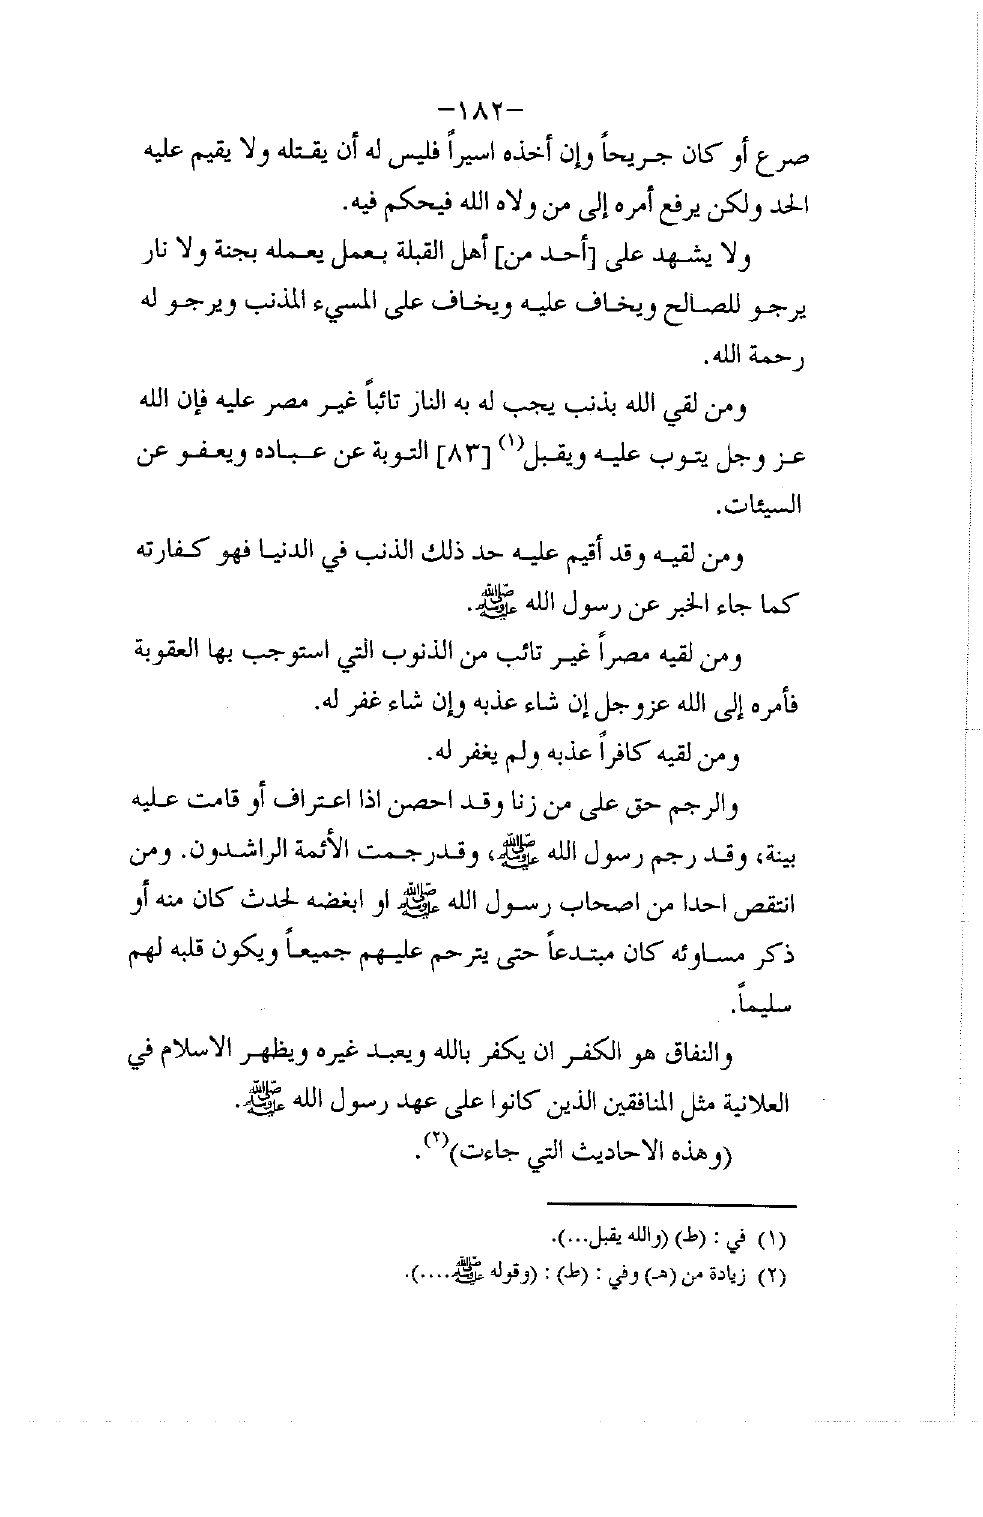 -١٨٢-
صرع أو كان جريحاً وإن أخذه اسيراً فليس له أن يقتله ولا يقيم عليه
الحد ولكن يرفع أمره إلى من ولاه الله فيحكم فيه.
ولا يشهد على [أحد من] أهل القبلة بعمل يعمله بجنة ولا نار
يرجو للصالح ويخاف عليه ويخاف على المسيء المذنب ويرجو له
رحمة الله.
ومن لقي الله بذنب يجب له به النار تائباً غير مصر عليه فإن الله
عز وجل يتوب عليه ويقبل(١) [٨٣] التوبة عن عباده ويعفو عن
السيئات.
ومن لقيه وقد أقيم عليه حد ذلك الذنب في الدنيا فهو كفارته
كما جاء الخبر عن رسول الله ﷺ.
ومن لقيه مصراً غير تائب من الذنوب التي استوجب بها العقوبة
فأمره إلى الله عزوجل إن شاء عذبه وإن شاء غفر له.
ومن لقيه كافراً عذبه ولم يغفر له.
والرجم حق على من زنا وقد احصن اذا اعتراف أو قامت عليه
بينة، وقد رجم رسول الله ﷺ، وقدرجمت الأئمة الراشدون. ومن
انتقص احدا من اصحاب رسول الله ﷺ او ابغضه لحدث كان منه أو
ذكر مساوئه كان مبتدعاً حتى يترحم عليهم جميعاً ويكون قلبه لهم
سليماً.
والنفاق هو الكفر ان يكفر بالله ويعبد غيره ويظهر الاسلام في
العلانية مثل المنافقين الذين كانوا على عهد رسول الله ﷺ.
(وهذه الاحاديث التي جاءت)(٢).
(١) في : (ط) (والله يقبل...).
(٢) زيادة من (هـ) وفي : (ط) : (وقوله ﷺ....).